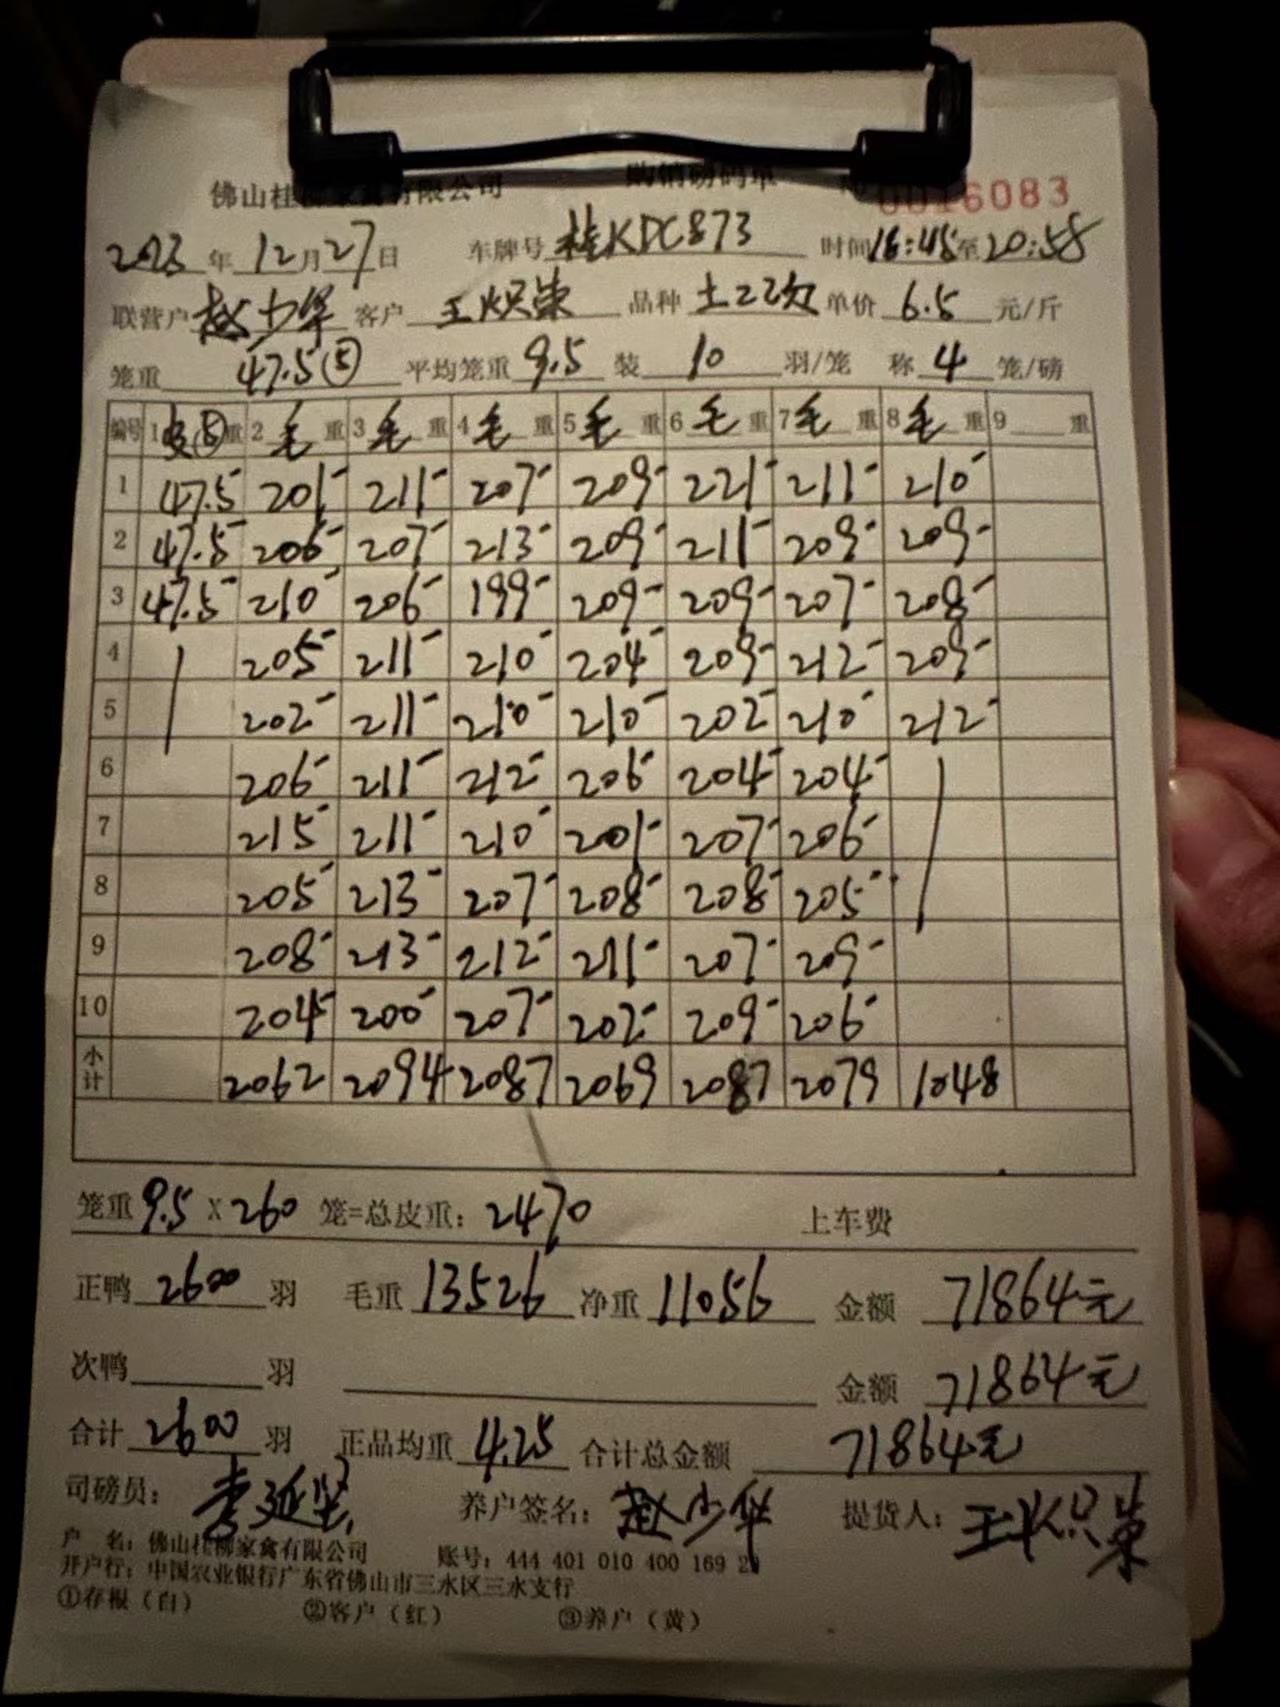 佛山桂柳家禽有限公司 购销磅码单 No 0016083
2023年12月27日 车牌号 桂KDC873 时间 16:45至20:58
联营户 赵少华 客户 王炽荣 品种 土22次 单价 6.5 元/斤
笼重 47.5⑤ 平均笼重 9.5 装 10 羽/笼 称 4 笼/磅
编号 1皮⑤重 2毛重 3毛重 4毛重 5毛重 6毛重 7毛重 8毛重 9 重
1 47.5 201 211 207 209 221 211 210
2 47.5 206 207 213 209 211 209 209
3 47.5 210 206 199 209 209 207 208
4 205 211 210 204 209 212 209
5 202 211 210 210 202 210 212
6 206 211 212 206 204 204
7 215 211 210 201 207 206
8 205 213 207 208 208 205
9 208 213 212 211 207 209
10 204 200 207 202 209 206
小计 2062 2094 2087 2069 2087 2079 1048
笼重 9.5 X 260 笼=总皮重: 2470 上车费
正鸭 2600 羽 毛重 13526 净重 11056 金额 71864元
次鸭 羽 金额 71864元
合计 2600 羽 正品均重 4.25 合计总金额 71864元
司磅员: 李延坚 养户签名: 赵少华 提货人: 王炽荣
户 名: 佛山桂柳家禽有限公司 账号: 444 401 010 400 169 2
开户行: 中国农业银行广东省佛山市三水区三水支行
①存根（白） ②客户（红） ③养户（黄）